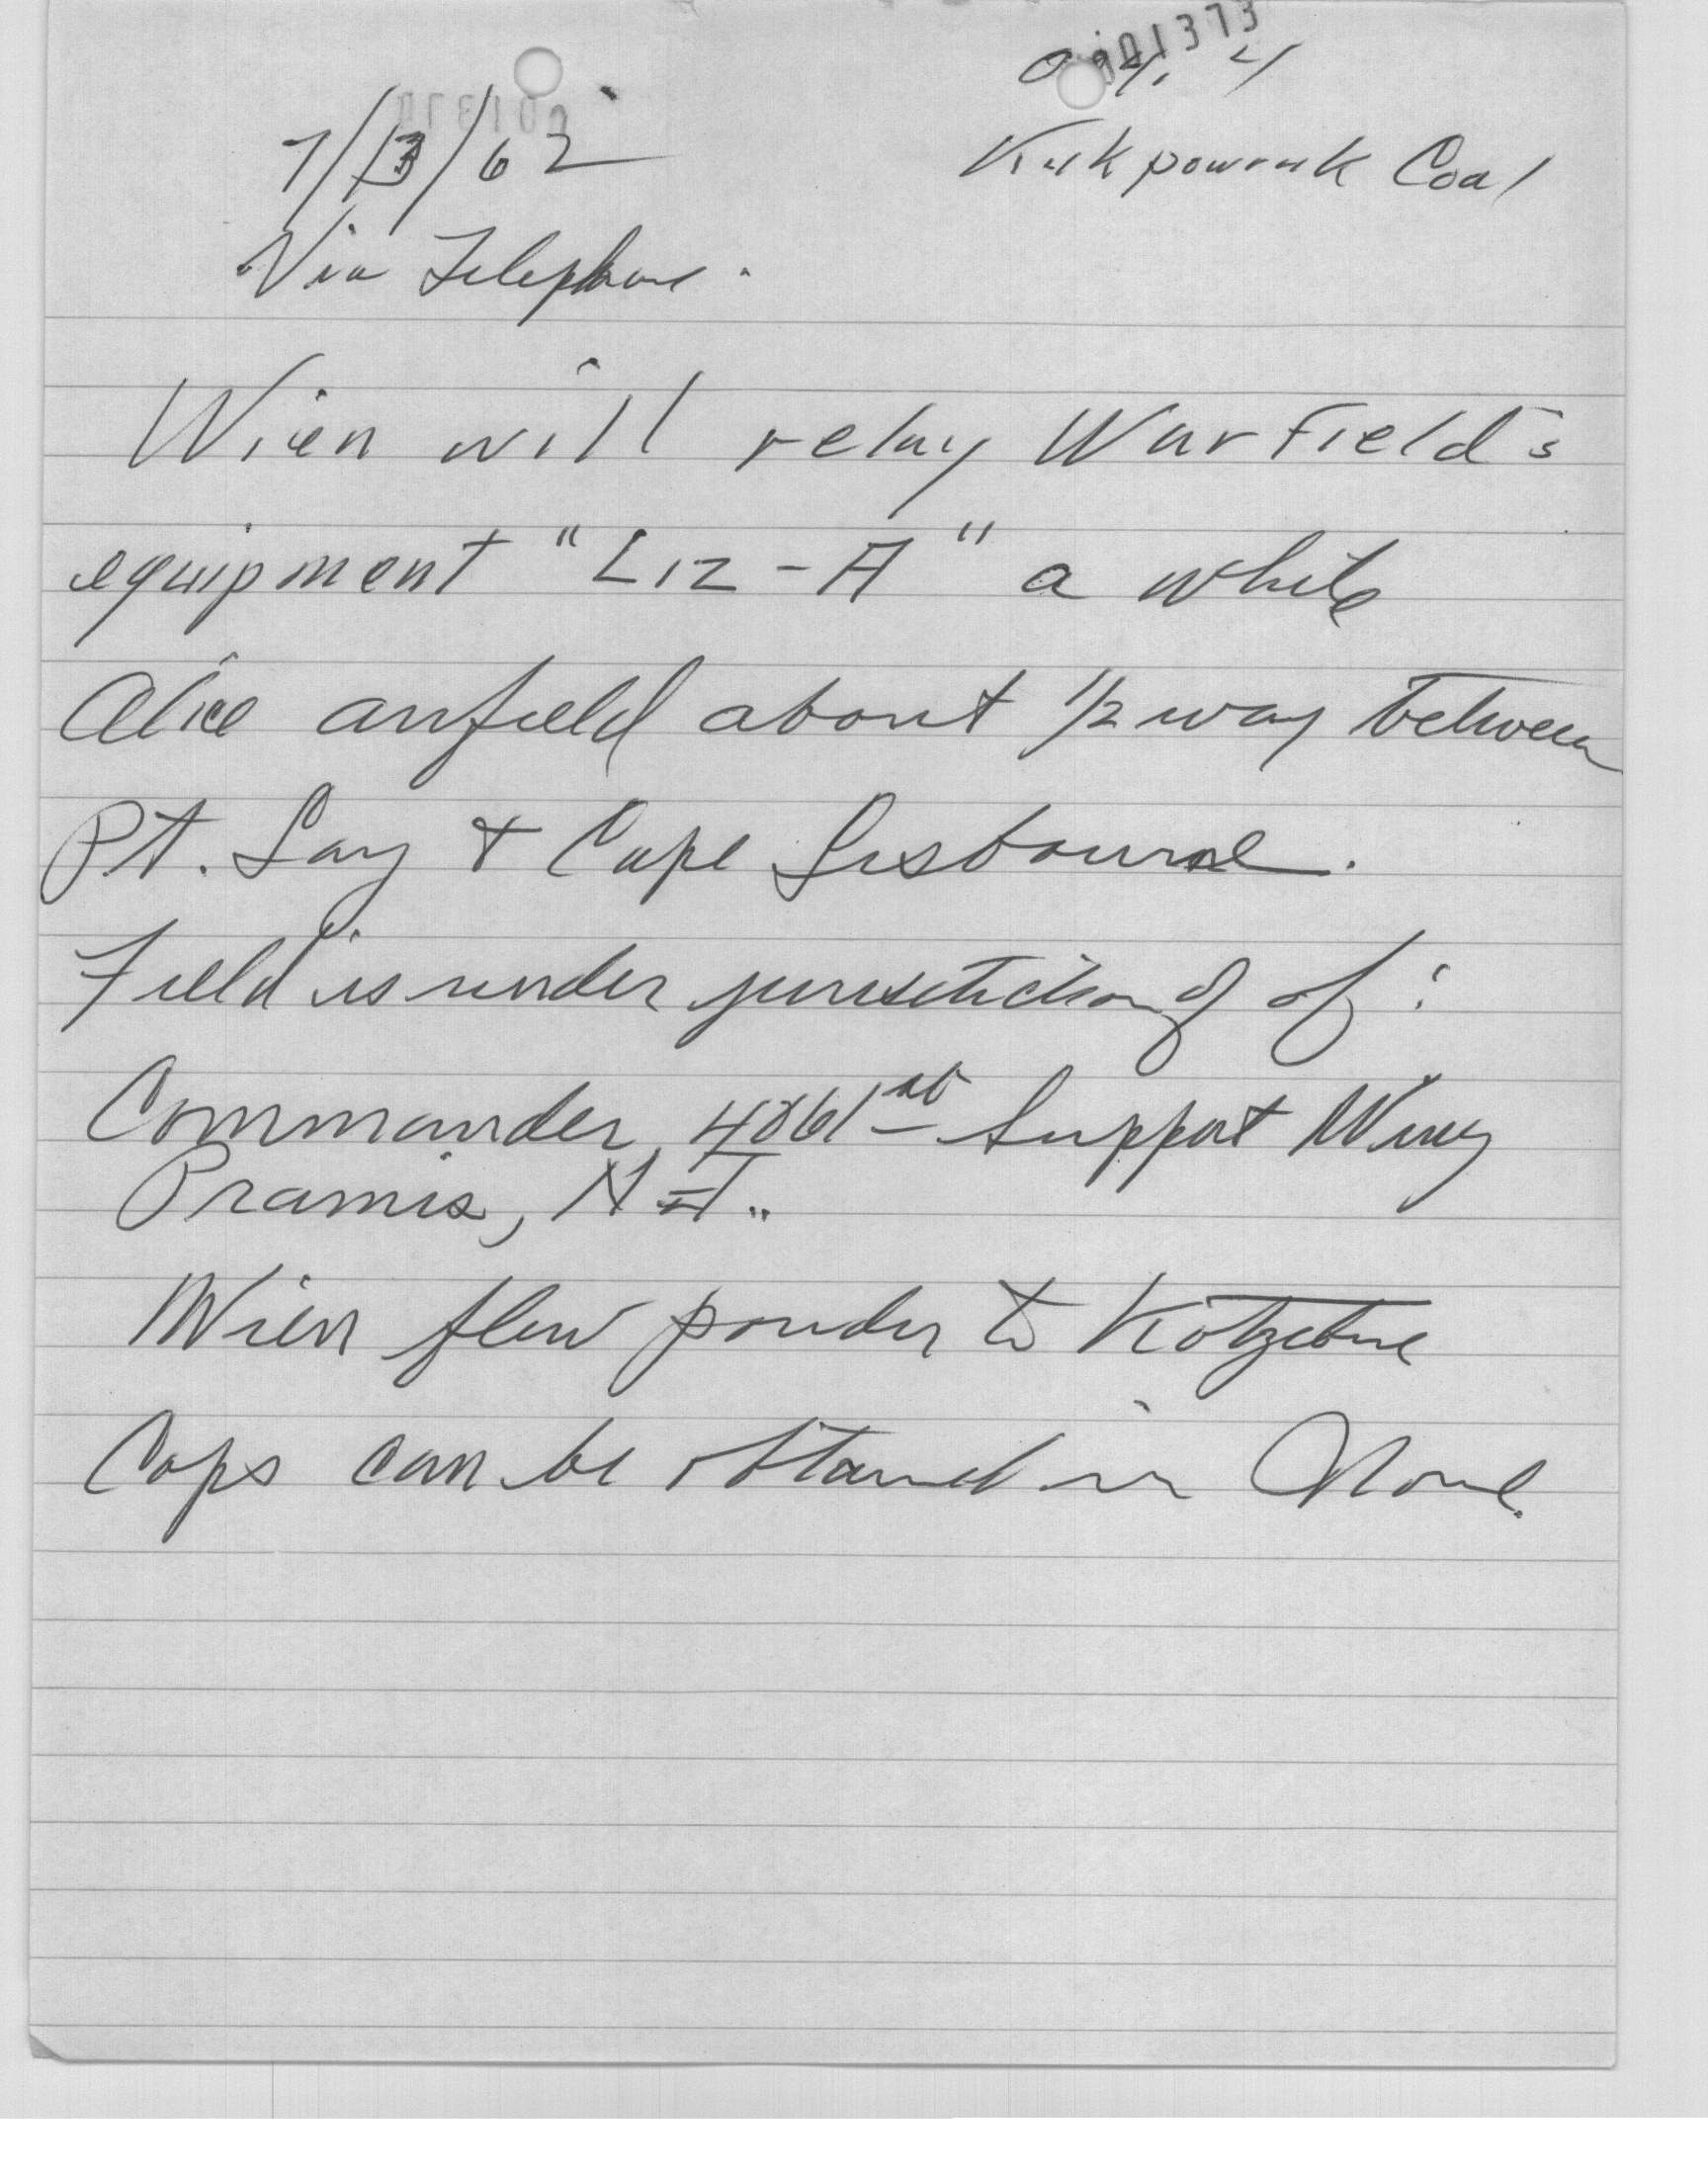 001373
7/13/62
Kukpowruk Coal
Via Telephone.
Wien will relay Warfield's
equipment "Liz-A" a white
Alice airfield about 1/2 way between
Pt. Lay & Cape Lisbourne.
Field is under jurisdiction of :
Commander, 4061st Support Wing
N.J.
Wien flew powder to Kotzebue
Caps can be obtained in Nome.